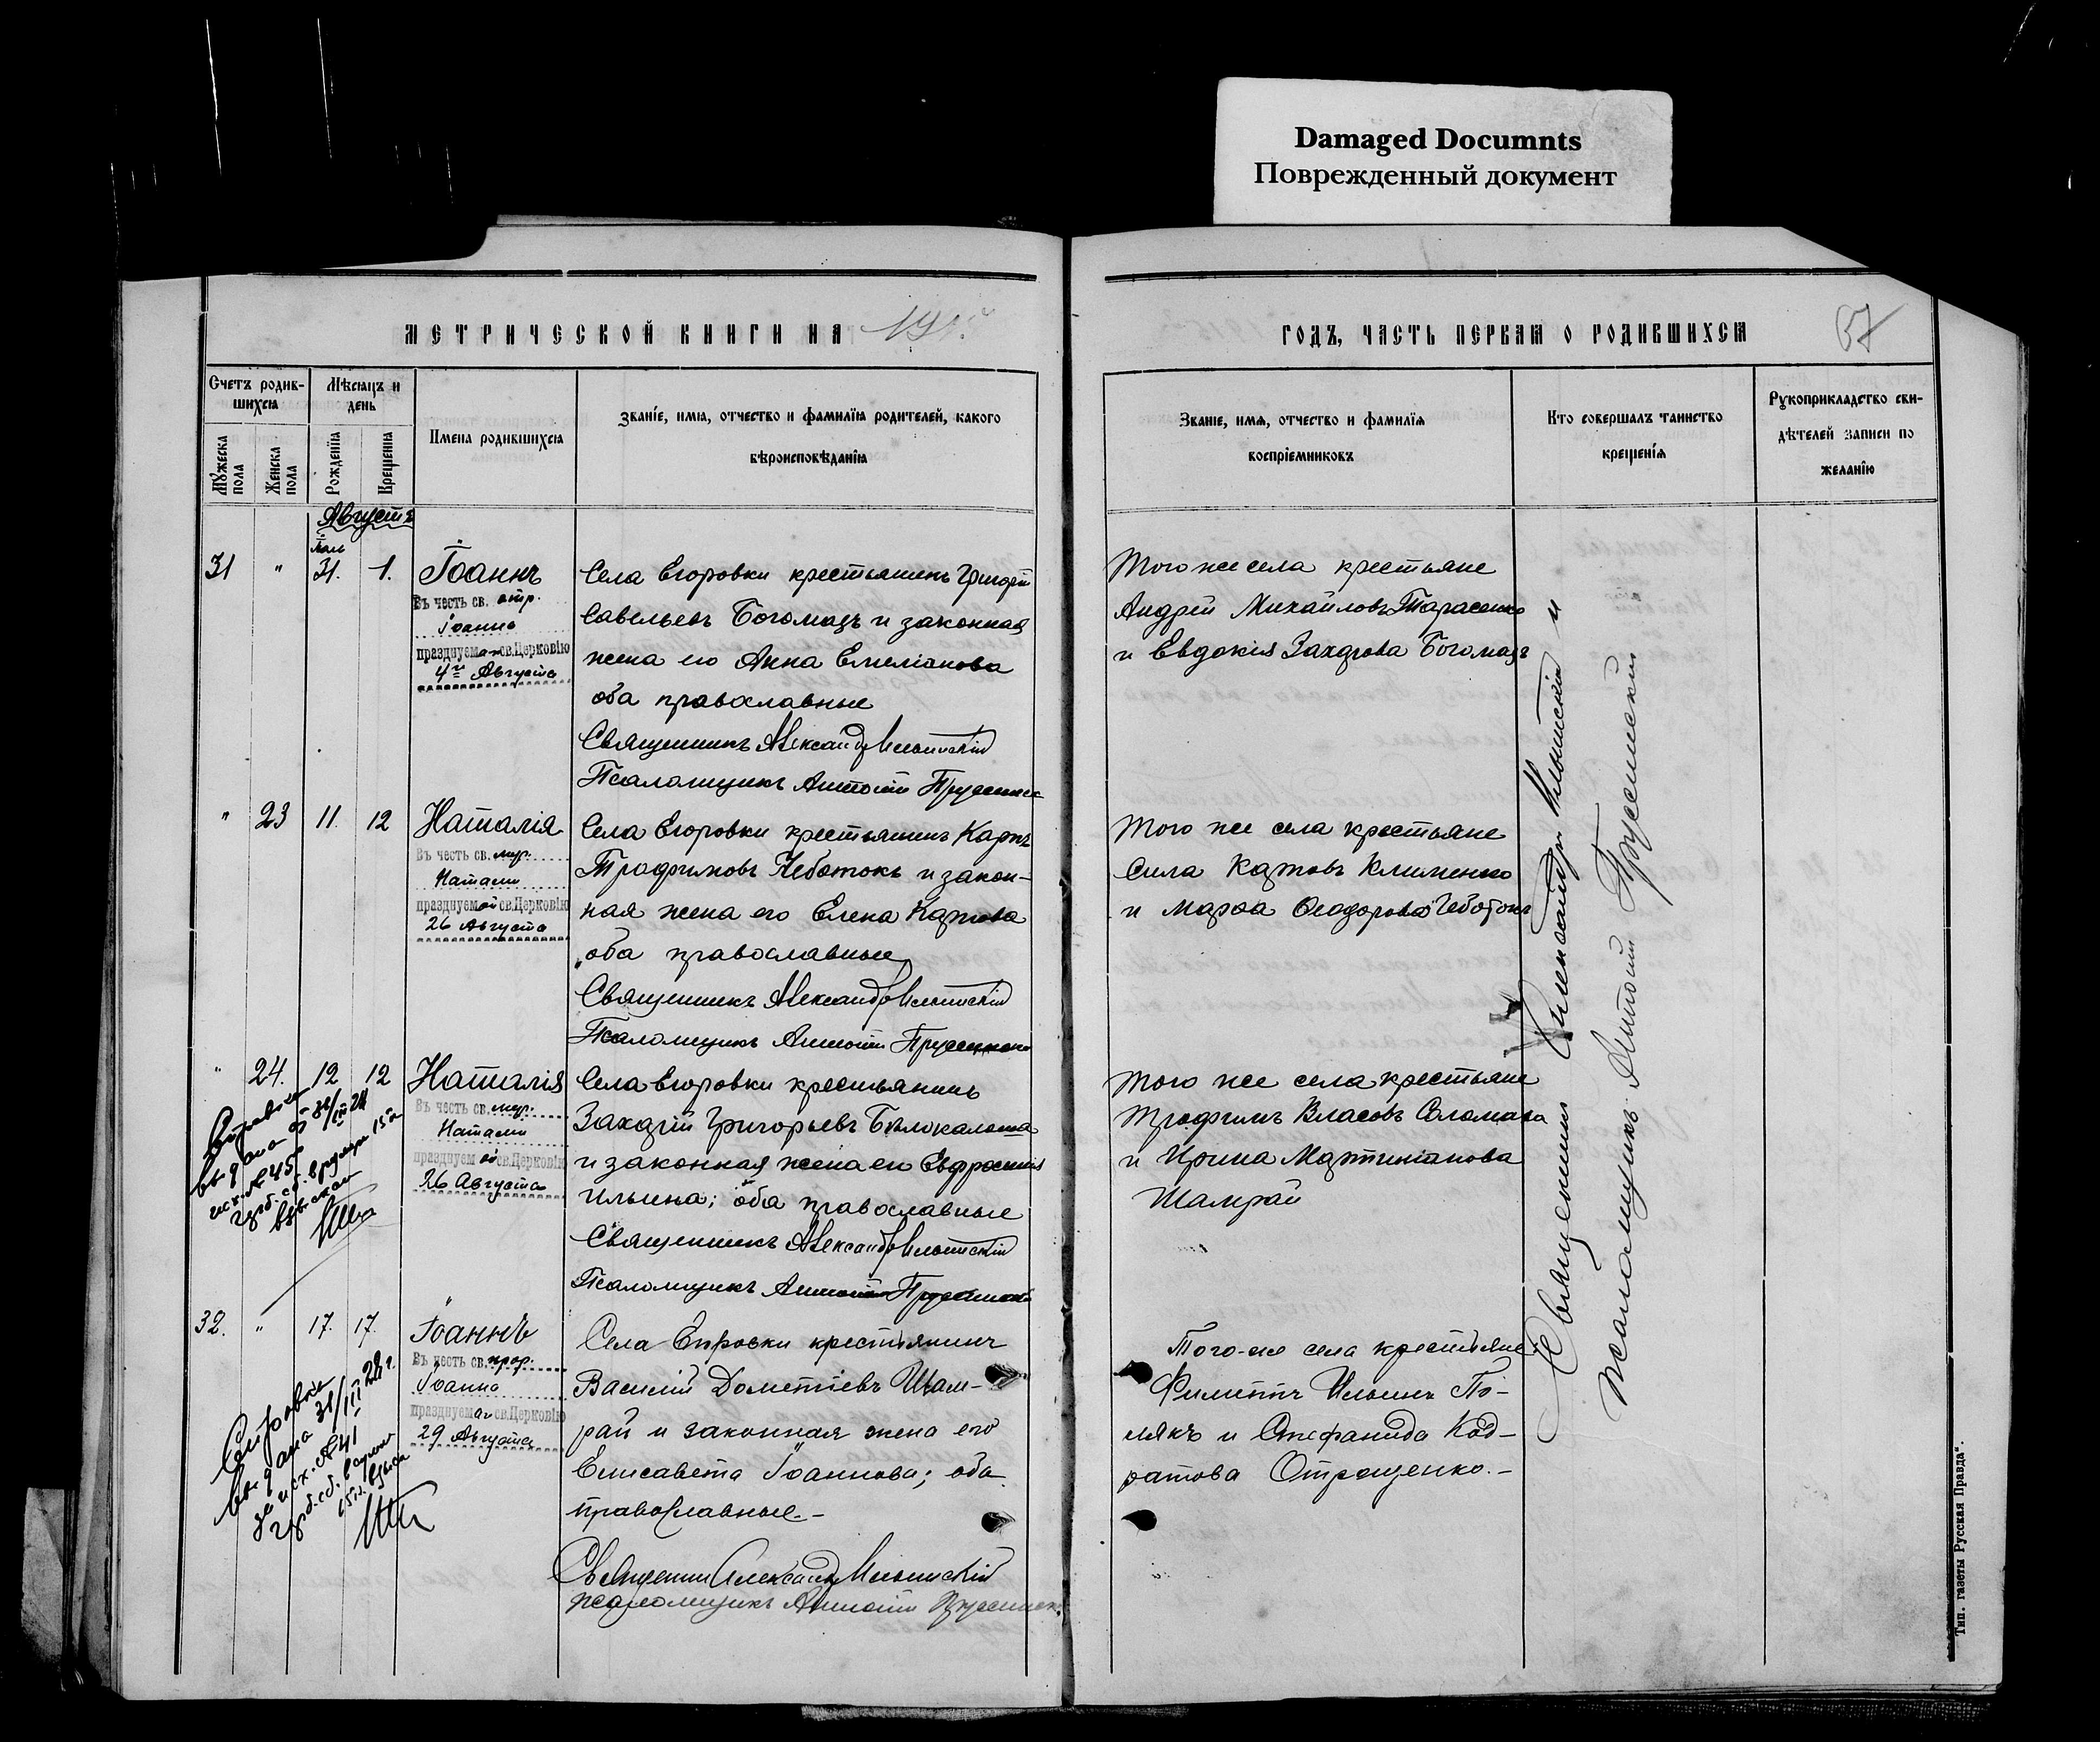 Damaged Documnts
Поврежденный документ
МЕТРИЧЕСКОЙ КНИГИ НА 191
Счетъ родив-
шихся
Мѣсяцъ и
день
Имена родившихся
Званіе, имя, отчество и фамилія родителей, какого
вѣроисповѣданія
Мужеска
пола
Женска
пола
Рожденія
Крещенія
Августъ
31 " 31. 1. Іоаннъ
Въ честь св. отр.
Іоанна
празднуем. св. Церковію
4го Августа
Села Егоровки крестьянинъ Григорій
Савельевъ Богомазъ и законная
жена его Анна Емеліанова
оба православные
Священникъ Александръ Ильинскій
Псаломщикъ Антоній
" 23 11. 12 Наталія
Въ честь св. мур.
Наталіи
празднуемой св. Церковію
26 Августа
Села Егоровки крестьянинъ Карпъ
Трофимовъ Чеботокъ и закон-
ная жена его Елена Карпова
оба православные
Священникъ Александръ Ильинскій
Псаломщикъ Антоній
" 24. 12 12 Наталія
Въ честь св. мур.
Наталіи
празднуемой св. Церковію
26 Августа
Села Егоровки крестьянинъ
Захарій Григорьевъ Бѣлокалоша
и законная жена его Евфросинія
Ильина; оба православные
Священникъ Александръ Ильинскій
Псаломщикъ Антоній
Справка
выдана
исх. № 45
32. " 17. 17. Іоаннъ
Въ честь св. прор.
Іоанна
празднуемаго св. Церковію
29 Августа
Села Егоровки крестьянинъ
Василій Дометіевъ Шам-
рай и законная жена его
Елисавета Іоаннова; оба
православные.-
Священникъ Александръ Ильинскій
псаломщикъ Антоній
Справка
выдана 31/III 28 г.
за исх. № 41
ГОДЪ, ЧАСТЬ ПЕРВАЯ О РОДИВШИХСЯ
57
Званіе, имя, отчество и фамилія
воспріемниковъ
Кто совершалъ таинство
крещенія
Рукоприкладство сви-
дѣтелей записи по
желанію
Того же села крестьяне
Андрей Михайловъ Тарасенко
и Евдокія Захарова Богомазъ
Того же села крестьяне
Сила Карповъ Клименко
и Марѳа Ѳеодорова Чеботокъ
Того же села крестьяне
Трофимъ Власовъ Соломаха
и Ирина Мартиніанова
Шамрай
Того-же села крестьяне
Филиппъ Ильинъ По-
лякъ и Стефанида Код-
ратова Отрощенко.-
Священникъ Александръ Ильинскій и
Псаломщикъ Антоній
Тип. газеты Русская Правда".